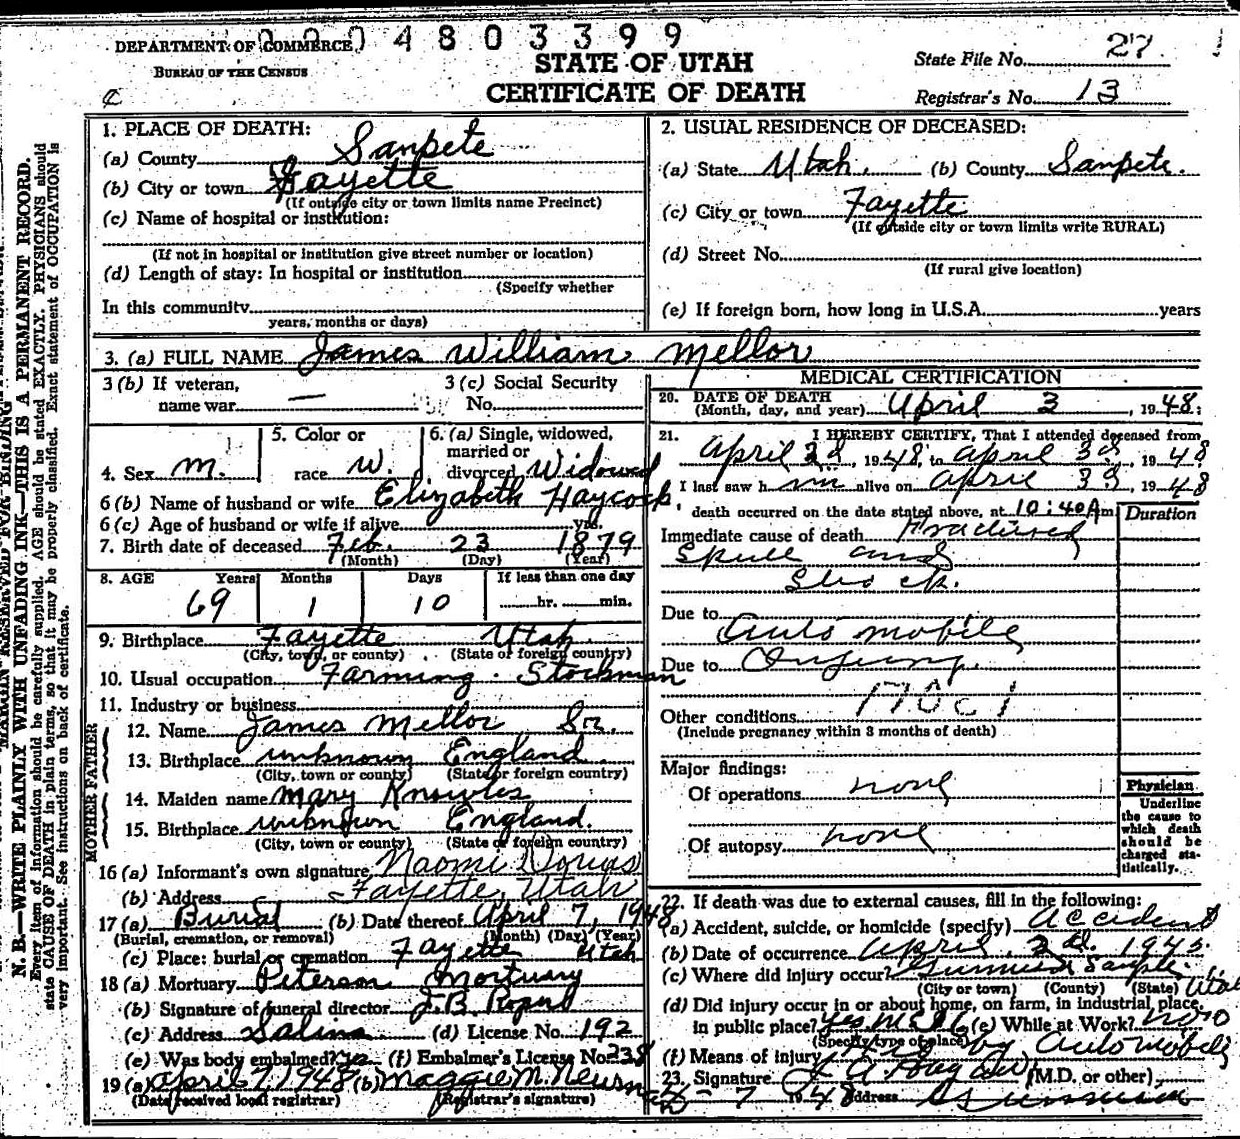 004803399
DEPARTMENT OF COMMERCE
BUREAU OF THE CENSUS
STATE OF UTAH
CERTIFICATE OF DEATH
State File No. 27
Registrar's No. 13
N. B.—WRITE PLAINLY WITH UNFADING INK—THIS IS A PERMANENT RECORD.
Every item of information should be carefully supplied. AGE should be stated EXACTLY. PHYSICIANS should
state CAUSE OF DEATH in plain terms, so that it may be properly classified. Exact statement of OCCUPATION is
very important. See instructions on back of certificate.
1. PLACE OF DEATH:
(a) County Sanpete
(b) City or town Fayette
(If outside city or town limits name Precinct)
(c) Name of hospital or institution:
(If not in hospital or institution give street number or location)
(d) Length of stay: In hospital or institution
(Specify whether
In this community
years, months or days)
2. USUAL RESIDENCE OF DECEASED:
(a) State Utah. (b) County Sanpete.
(c) City or town Fayette
(If outside city or town limits write RURAL)
(d) Street No.
(If rural give location)
(e) If foreign born, how long in U.S.A. years
3. (a) FULL NAME James William Mellor
3 (b) If veteran, name war —
3 (c) Social Security No.
4. Sex m.
5. Color or race W.
6. (a) Single, widowed, married or divorced Widowed
6 (b) Name of husband or wife Elizabeth Haycock
6 (c) Age of husband or wife if alive yrs.
7. Birth date of deceased Feb. 23 1879
(Month) (Day) (Year)
8. AGE Years Months Days If less than one day
69 1 10 hr. min.
9. Birthplace Fayette Utah.
(City, town, or county) (State or foreign country)
10. Usual occupation Farming - Stockman
11. Industry or business
FATHER
12. Name James Mellor Sr.
13. Birthplace unknown England
(City, town or county) (State or foreign country)
MOTHER
14. Maiden name Mary Knowles
15. Birthplace unknown England.
(City, town or county) (State or foreign country)
16 (a) Informant's own signature Naomi
(b) Address Fayette, Utah
17 (a) Burial (b) Date thereof April 7, 1948
(Burial, cremation, or removal) (Month) (Day) (Year)
(c) Place: burial or cremation Fayette Utah
18 (a) Mortuary Peterson Mortuary
(b) Signature of funeral director
(c) Address Salina (d) License No. 192
(e) Was body embalmed? yes (f) Embalmer's License No. 238
19 (a) April 7, 1948 (b) Maggie M.
(Date received local registrar) (Registrar's signature)
MEDICAL CERTIFICATION
20. DATE OF DEATH
(Month, day, and year) April 3, 1948.
21. I HEREBY CERTIFY, That I attended deceased from
April 2d, 1948, to April 3d, 1948
I last saw him alive on April 3d, 1948
death occurred on the date stated above, at 10:40Am
Duration
Immediate cause of death Fractured
Skull and
Shock.
Due to
Automobile
Due to Injury.
170c1
Other conditions
(Include pregnancy within 3 months of death)
Major findings:
Of operations none
Of autopsy none
Physician
Underline
the cause to
which death
should be
charged sta-
tistically.
22. If death was due to external causes, fill in the following:
(a) Accident, suicide, or homicide (specify) Accident
(b) Date of occurrence April 2d.
(c) Where did injury occur? Gunnison Sanpete Utah
(City or town) (County) (State)
(d) Did injury occur in or about home, on farm, in industrial place,
in public place? yes (e) While at Work? no
(Specify type of place)
(f) Means of injury by automobile
23. Signature (M.D. or other)
7 1948 Address Gunnison